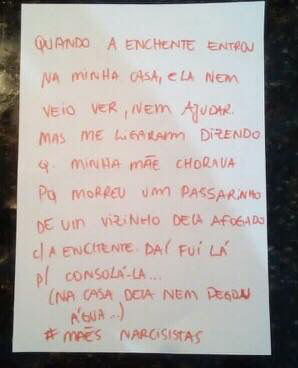 QUANDO A ENCHENTE ENTROU
NA MINHA CASA, ELA NEM
VEIO VER, NEM AJUDAR.
MAS ME LIGARAM DIZENDO
Q. MINHA MÃE CHORAVA
PQ MORREU UM PASSARINHO
DE UM VIZINHO DELA AFOGADO
C/ A ENCHENTE. DAÍ FUI LÁ
P/ CONSOLÁ-LA...
(NA CASA DELA NEM PEGOU
ÁGUA...)
# MÃES NARCISISTAS